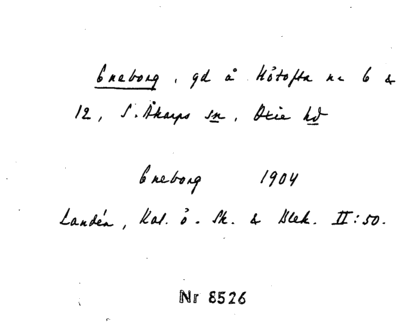 Eneborg, gd å Hötofta nr 6 &
12, S. Åkarps sn, Oxie hd
Eneborg 1904
Landén, Kal. ö. Sk. & Blek. II: 50.
Nr 8526